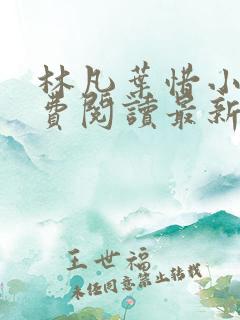 林凡葉惜小
費閱讀最新
王世福
未经同意禁止转载